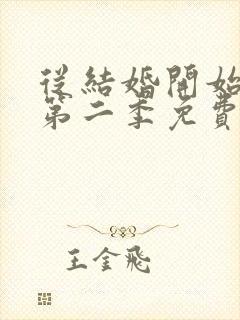 從結婚開始
第二季免費
王金飛